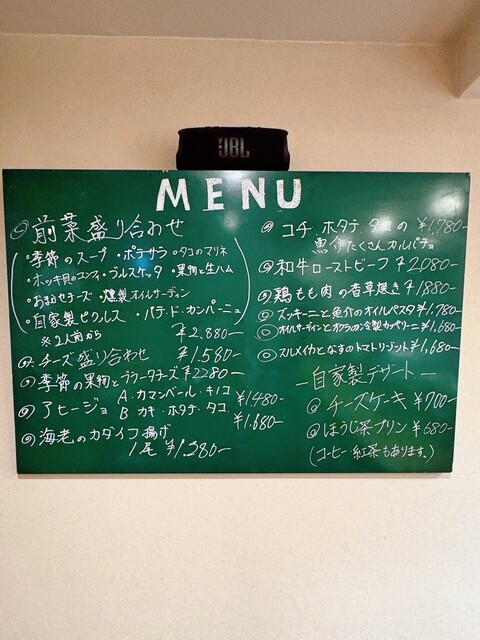 JBL
MENU
◎前菜盛り合わせ
・季節のスープ・ポテサラ・タコのマリネ
・ホッキ貝のコンフィ・ブルスケッタ・果物と生ハム
・おまかせチーズ・燻製オイルサーディン
・自家製ピクルス・パテ・ド・カンパーニュ
※2人前から ¥2,880-
◎チーズ盛り合わせ ¥1,580-
◎季節の果物とブラータチーズ ¥2280-
◎アヒージョ A.カマンベール・キノコ ¥1480-
B カキ・ホタテ・タコ ¥1,680-
◎海老のカダイフ揚げ
1尾 ¥1,380-
◎コチ.ホタテ タコの ¥1,780-
魚介たくさんカルパッチョ
◎和牛ローストビーフ ¥2080-
◎鶏もも肉の香草焼き ¥1880-
◎ズッキーニと魚介のオイルパスタ ¥1,780
◎オイルサーディンとオクラの冷製カッペリーニ ¥1,680-
◎スルメイカとなすのトマトリゾット ¥1,680-
―自家製デザート―
◎チーズケーキ ¥700-
◎ほうじ茶プリン ¥680-
(コーヒー 紅茶もあります。)